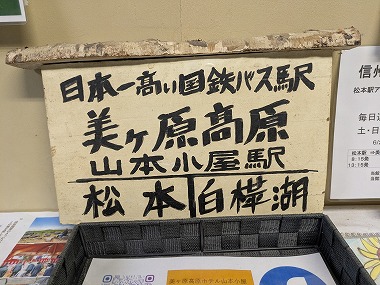 日本一高い国鉄バス駅
美ヶ原高原
山本小屋駅
松本 白樺湖
信州
松本駅ア
毎日運
土・日
松本駅
9:15発
美ヶ原高原ホテル山本小屋